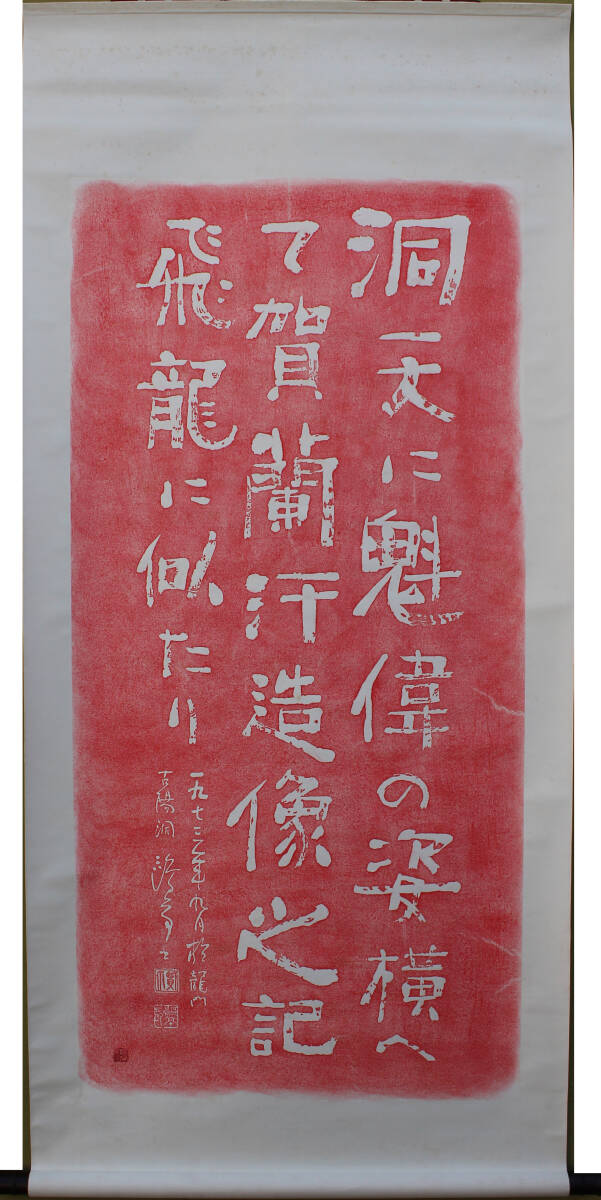 洞天に魁偉の姿横へ
て賀蘭汗造像之記
飛龍に似たり
一九七三年九月於龍門
古陽洞